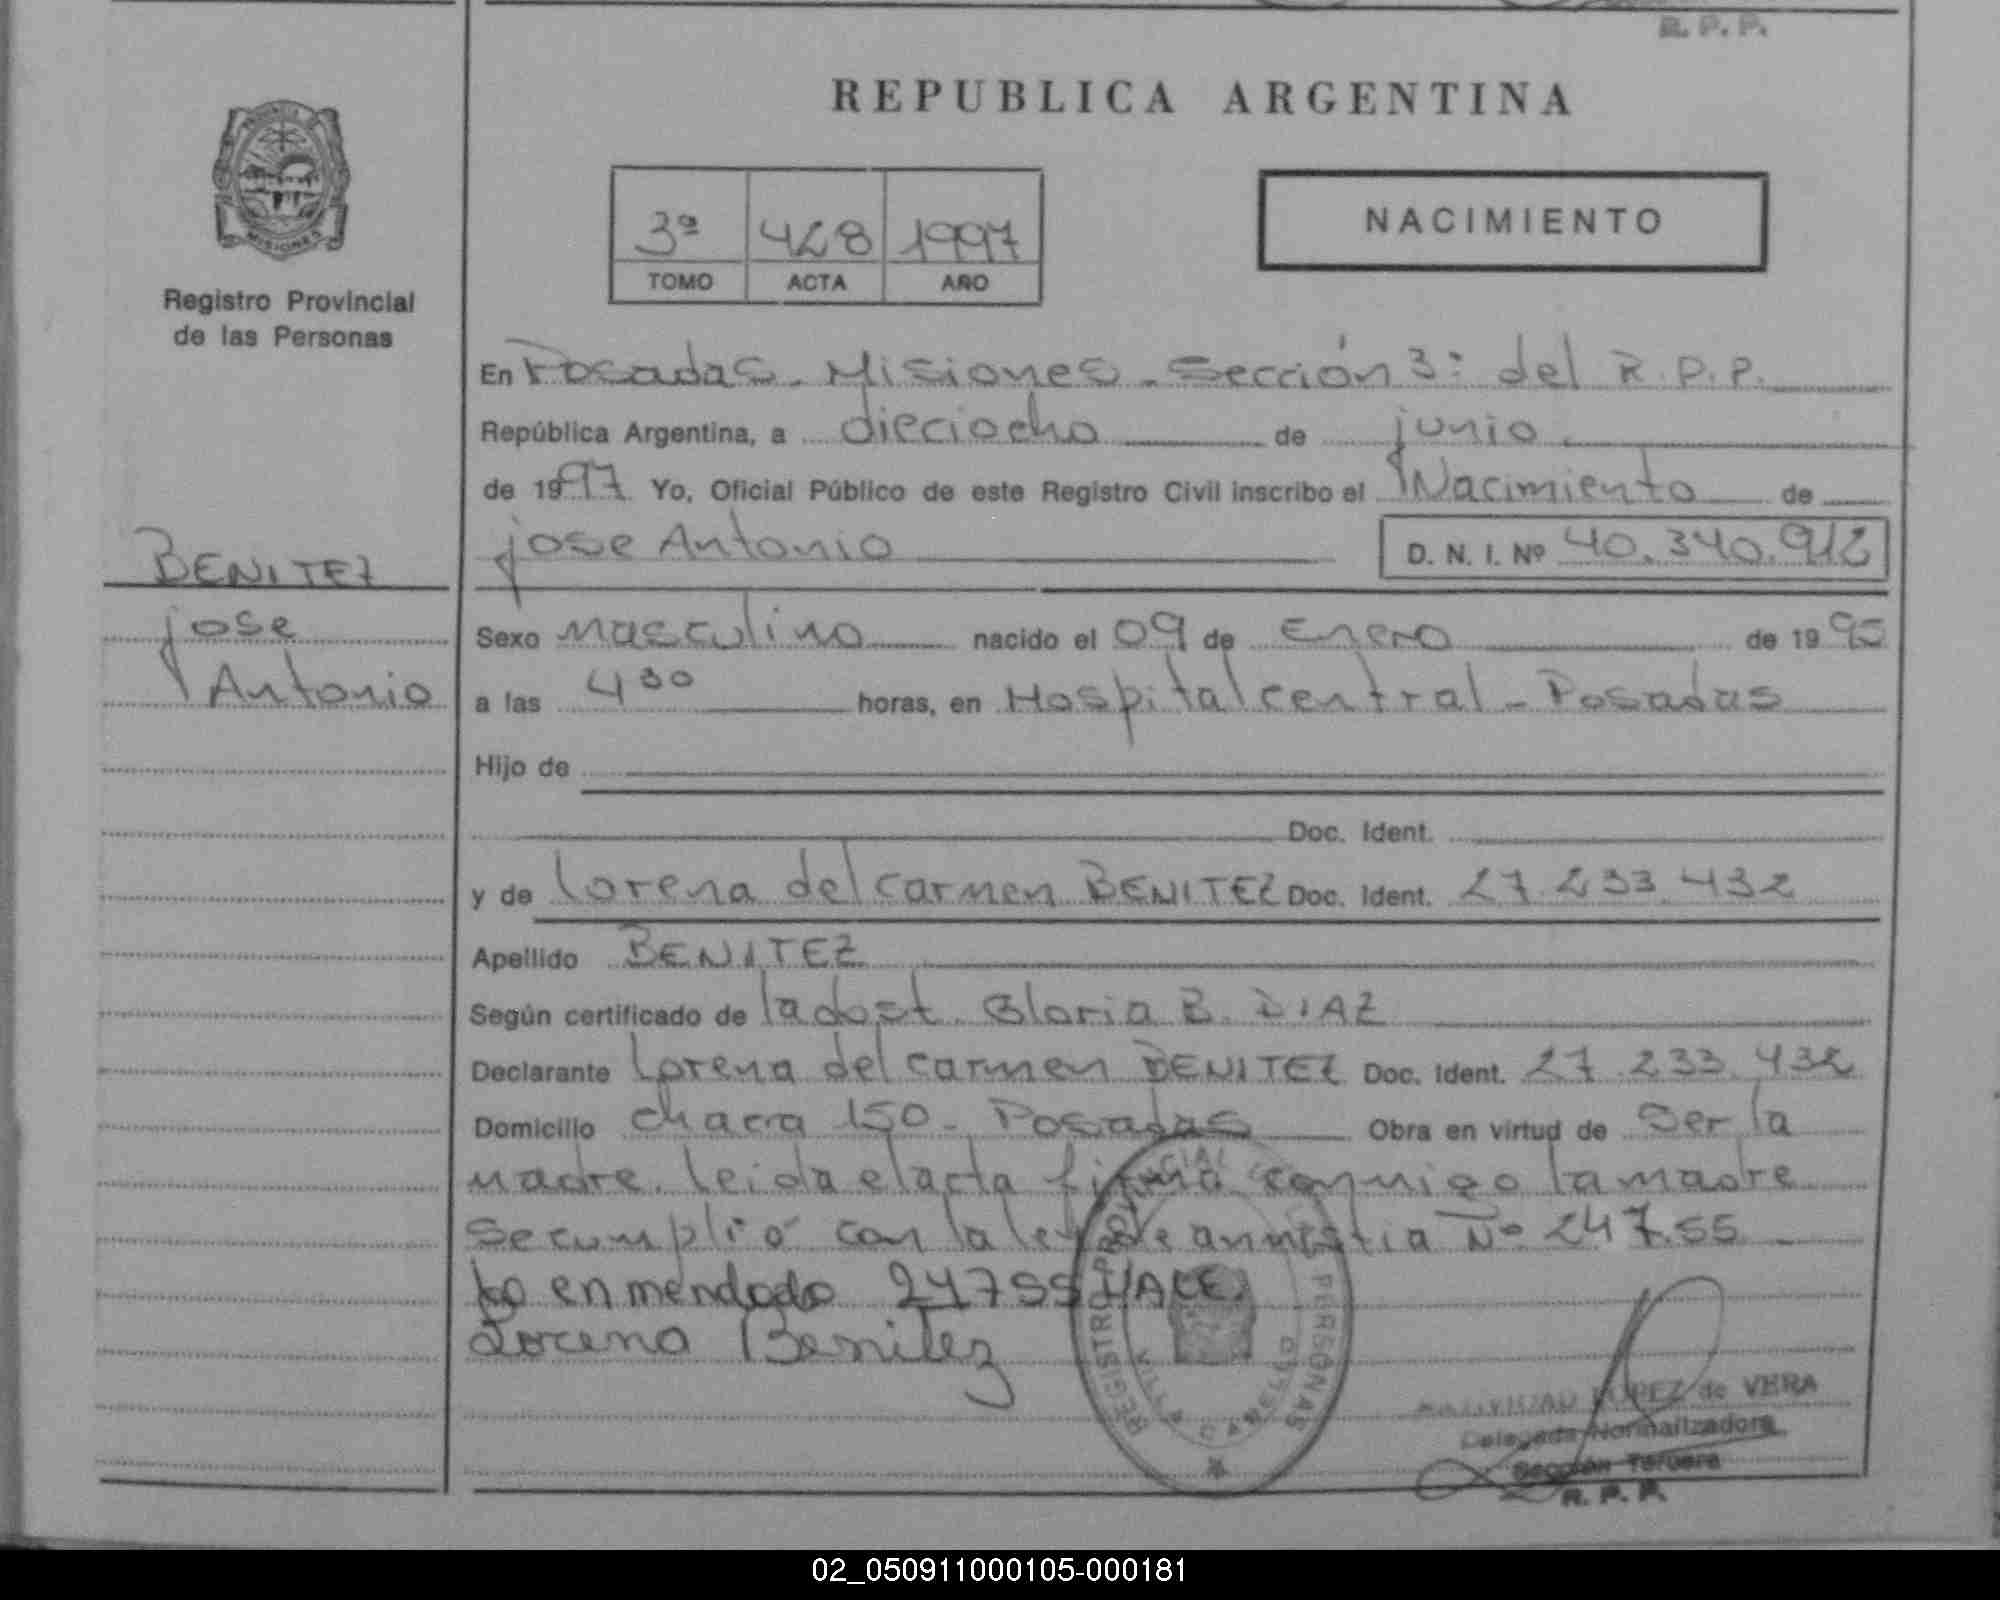 R. P. P.
REPUBLICA ARGENTINA
PROVINCIA
MISIONES
Registro Provincial
de las Personas
3ª 428 1997
TOMO ACTA AÑO
NACIMIENTO
En Posadas. Misiones. Sección 3: del R.P.P.
República Argentina, a dieciocho de junio
de 1997 Yo, Oficial Público de este Registro Civil inscribo el Nacimiento de
BENITEZ
jose Antonio D. N. I. Nº 40.340.912
jose
Antonio
Sexo masculino nacido el 09 de Enero de 1995
a las 4 30 horas, en Hospital central - Posadas
Hijo de
Doc. Ident.
y de Lorena del carmen BENITEZ Doc. Ident. 27.233.432
Apellido BENITEZ
Según certificado de la obst. Gloria B. DIAZ
Declarante Lorena del carmen BENITEZ Doc. Ident. 27.233.432
Domicilio chacra 150 - Posadas Obra en virtud de Ser la
madre. leida el acta firma conmigo la madre
Se cumplió con la ley de amnistia Nº 24755
Lo enmendado 24755 VALE
Lorena Benitez
REGISTRO PROVINCIAL PERSONAS
VILLA CABELLO
NATIVIDAD LOPEZ de VERA
Delegada Normalizadora
Sección Tercera
R. P. P.
02_050911000105-000181